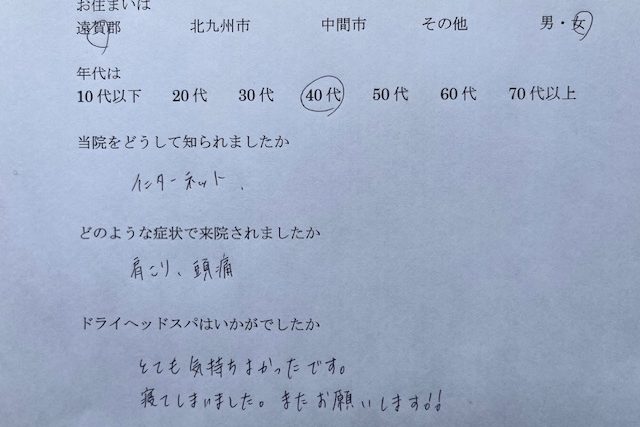 お住まいは
遠賀郡 北九州市 中間市 その他 男・女
年代は
10代以下 20代 30代 40代 50代 60代 70代以上
当院をどうして知られましたか
インターネット.
どのような症状で来院されましたか
肩こり、頭痛
ドライヘッドスパはいかがでしたか
とても気持ちよかったです。
寝てしまいました。またお願いします!!